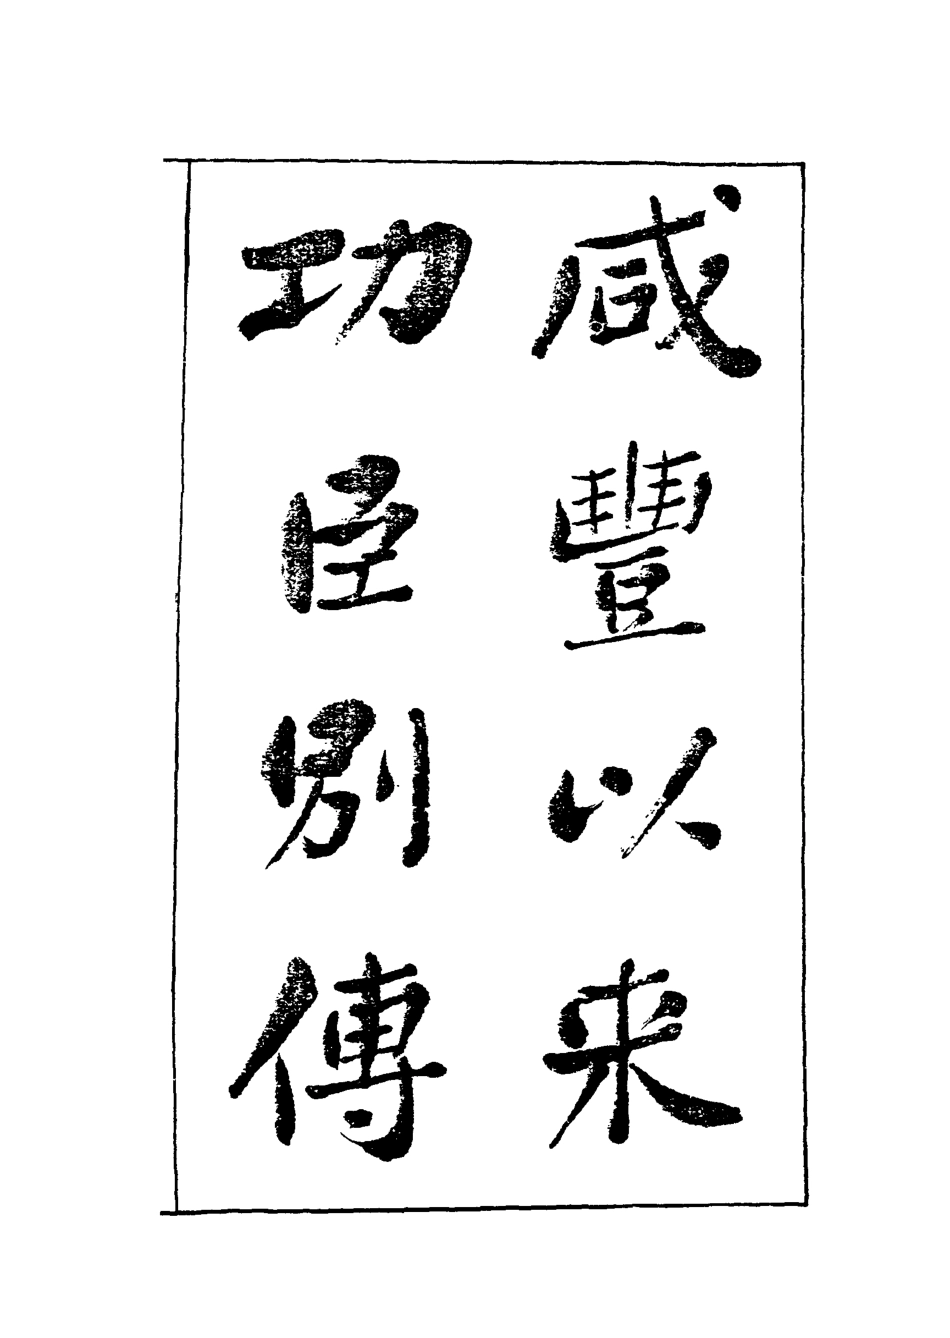 咸豐以来
功臣別傳